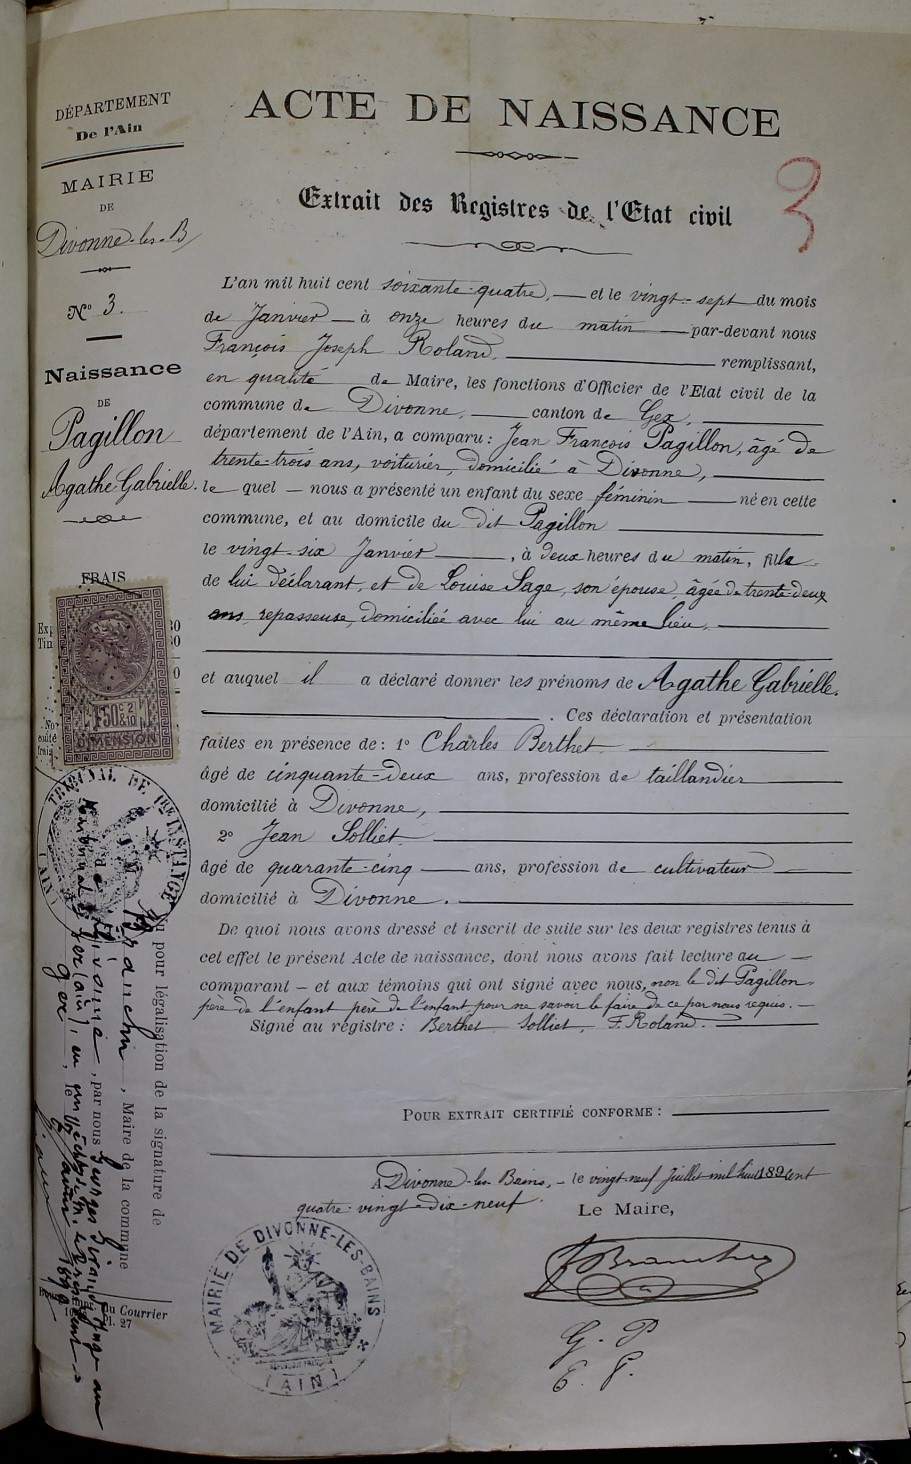 DÉPARTEMENT
De l'Ain
MAIRIE
DE
Divonne-les-B
N° 3.
Naissance
DE
Pagillon
Agathe Gabrielle.
FRAIS
1F50C 2 &10
DIMENSION
TRIBUNAL DE 1ère INSTANCE
(AIN)
ACTE DE NAISSANCE
Extrait des Registres de l'Etat civil
3
L'an mil huit cent soixante-quatre, et le vingt-sept du mois
de Janvier à onze heures du matin par-devant nous
François Joseph Roland, remplissant,
en qualité de Maire, les fonctions d'Officier de l'Etat civil de la
commune de Divonne, canton de Gex,
département de l'Ain, a comparu: Jean François Pagillon, âgé de
trente-trois ans, voiturier, domicilié à Divonne,
le quel nous a présenté un enfant du sexe féminin né en cette
commune, et au domicile du dit Pagillon
le vingt-six Janvier, à deux heures du matin, fille
de lui déclarant, et de Louise Sage, son épouse, âgée de trente-deux
ans, repasseuse, domiciliée avec lui au même lieu,
et auquel il a déclaré donner les prénoms de Agathe Gabrielle.
. Ces déclaration et présentation
faites en présence de: 1° Charles Berthet
âgé de cinquante-deux ans, profession de taillandier
domicilié à Divonne,
2° Jean Solliet
âgé de quarante-cinq ans, profession de cultivateur
domicilié à Divonne.
De quoi nous avons dressé et inscrit de suite sur les deux registres tenus à
cet effet le présent Acte de naissance, dont nous avons fait lecture au
comparant et aux témoins qui ont signé avec nous, non le dit Pagillon
père de l'enfant père de l'enfant pour ne savoir le faire de ce par nous requis.
Signé au registre: Berthet Solliet, F. Roland.
POUR EXTRAIT CERTIFIÉ CONFORME:
A Divonne-les-Bains, le vingt-neuf Juillet mil huit 189 cent
quatre-vingt-dix-neuf.
Le Maire,
MAIRIE DE DIVONNE-LES-BAINS
(AIN)
G. P
E. P.
Vu pour légalisation de la signature de
, Maire de la commune
de Divonne, par nous
, le
du Courrier
Pl. 27